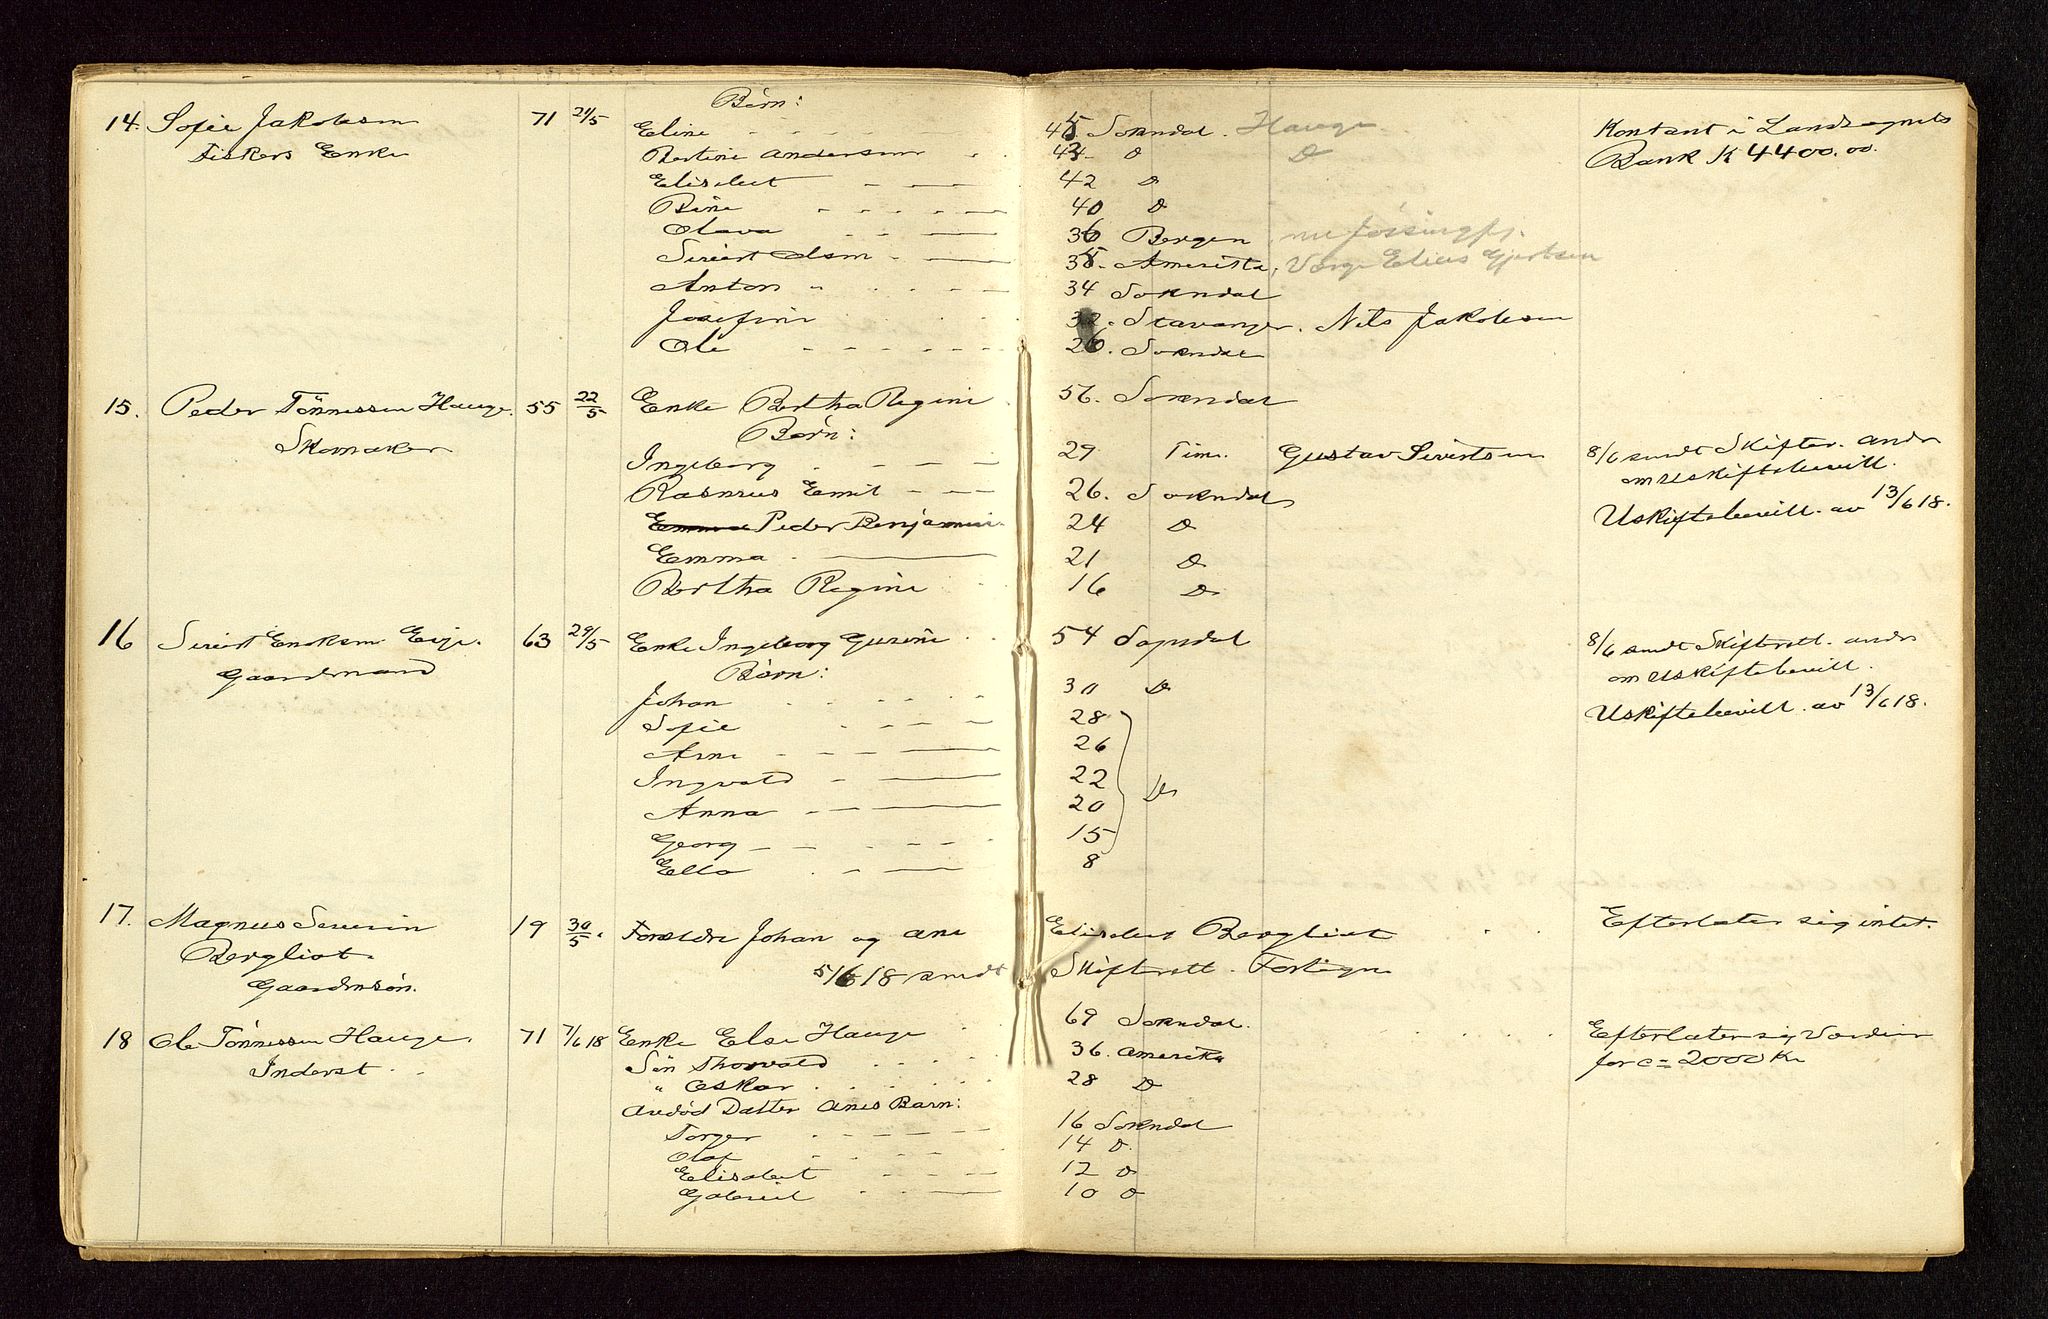 Børn:
14. Sofie Jakobsen 71 Eline 45 Sokndal. Hauge Kontant i Landsognets
Fiskers Enke Bertine Andersen D D Bank K 4400.00.
Elisabet 42 D
Bine 40 D
Olava 36 Bergen, nu Jøssingfj.
Sivert Olsen 35. Amerika, Værge Elias Gjertsen
Anton 34 Sokndal
Josefine 32. Stavanger. Nils Jakobsen
Ole 26. Sokndal
15. Peder Tönnessen Hauge. 55 22/5 Enke Bertha Regine 56. Sokndal
Skomaker Børn:
Ingeborg 29 Time. Gustav Sivertsen 8/6 sendt Skifter. andr
Rasmus Emil 26. Sokndal om Uskiftebevill.
Peder Benjamin 24 D Uskiftebevill. av 13/6 18.
Emma 21 D
Bertha Regine 16 D
16 Sivert Eriksen Eige. 63 29/5 Enke Ingeborg Gurine 54 Sogndal 8/6 sendt Skifterett. andr
Gaardmand Børn: om Uskiftebevill.
Johan 30 D
Sofie 28 Uskiftebevill. av 13/6 18.
Arne 26
Ingvald 22 D
Anna 20
Georg 15
Ella 8
17. Magnus Severin 19 30/5. Forældre Johan og Ane Elisabet Bergliot Efterlater sig intet.
Bergliot. 5/6 18 sendt Skifterett.
Gaardmsön.
18 Ole Tönnessen Hauge. 71 7/6 18 Enke Else Hauge 69 Sokndal. Efterlater sig Værdier
Inderst Sön Thorvald 36. Amerika for c = 2000 Kr
" Oskar 28 D
Avdöd Datter Anes Barn:
Torger 16 Sokndal
Olaf 14 D.
Elisabet 12 D
Gabriel 10 D